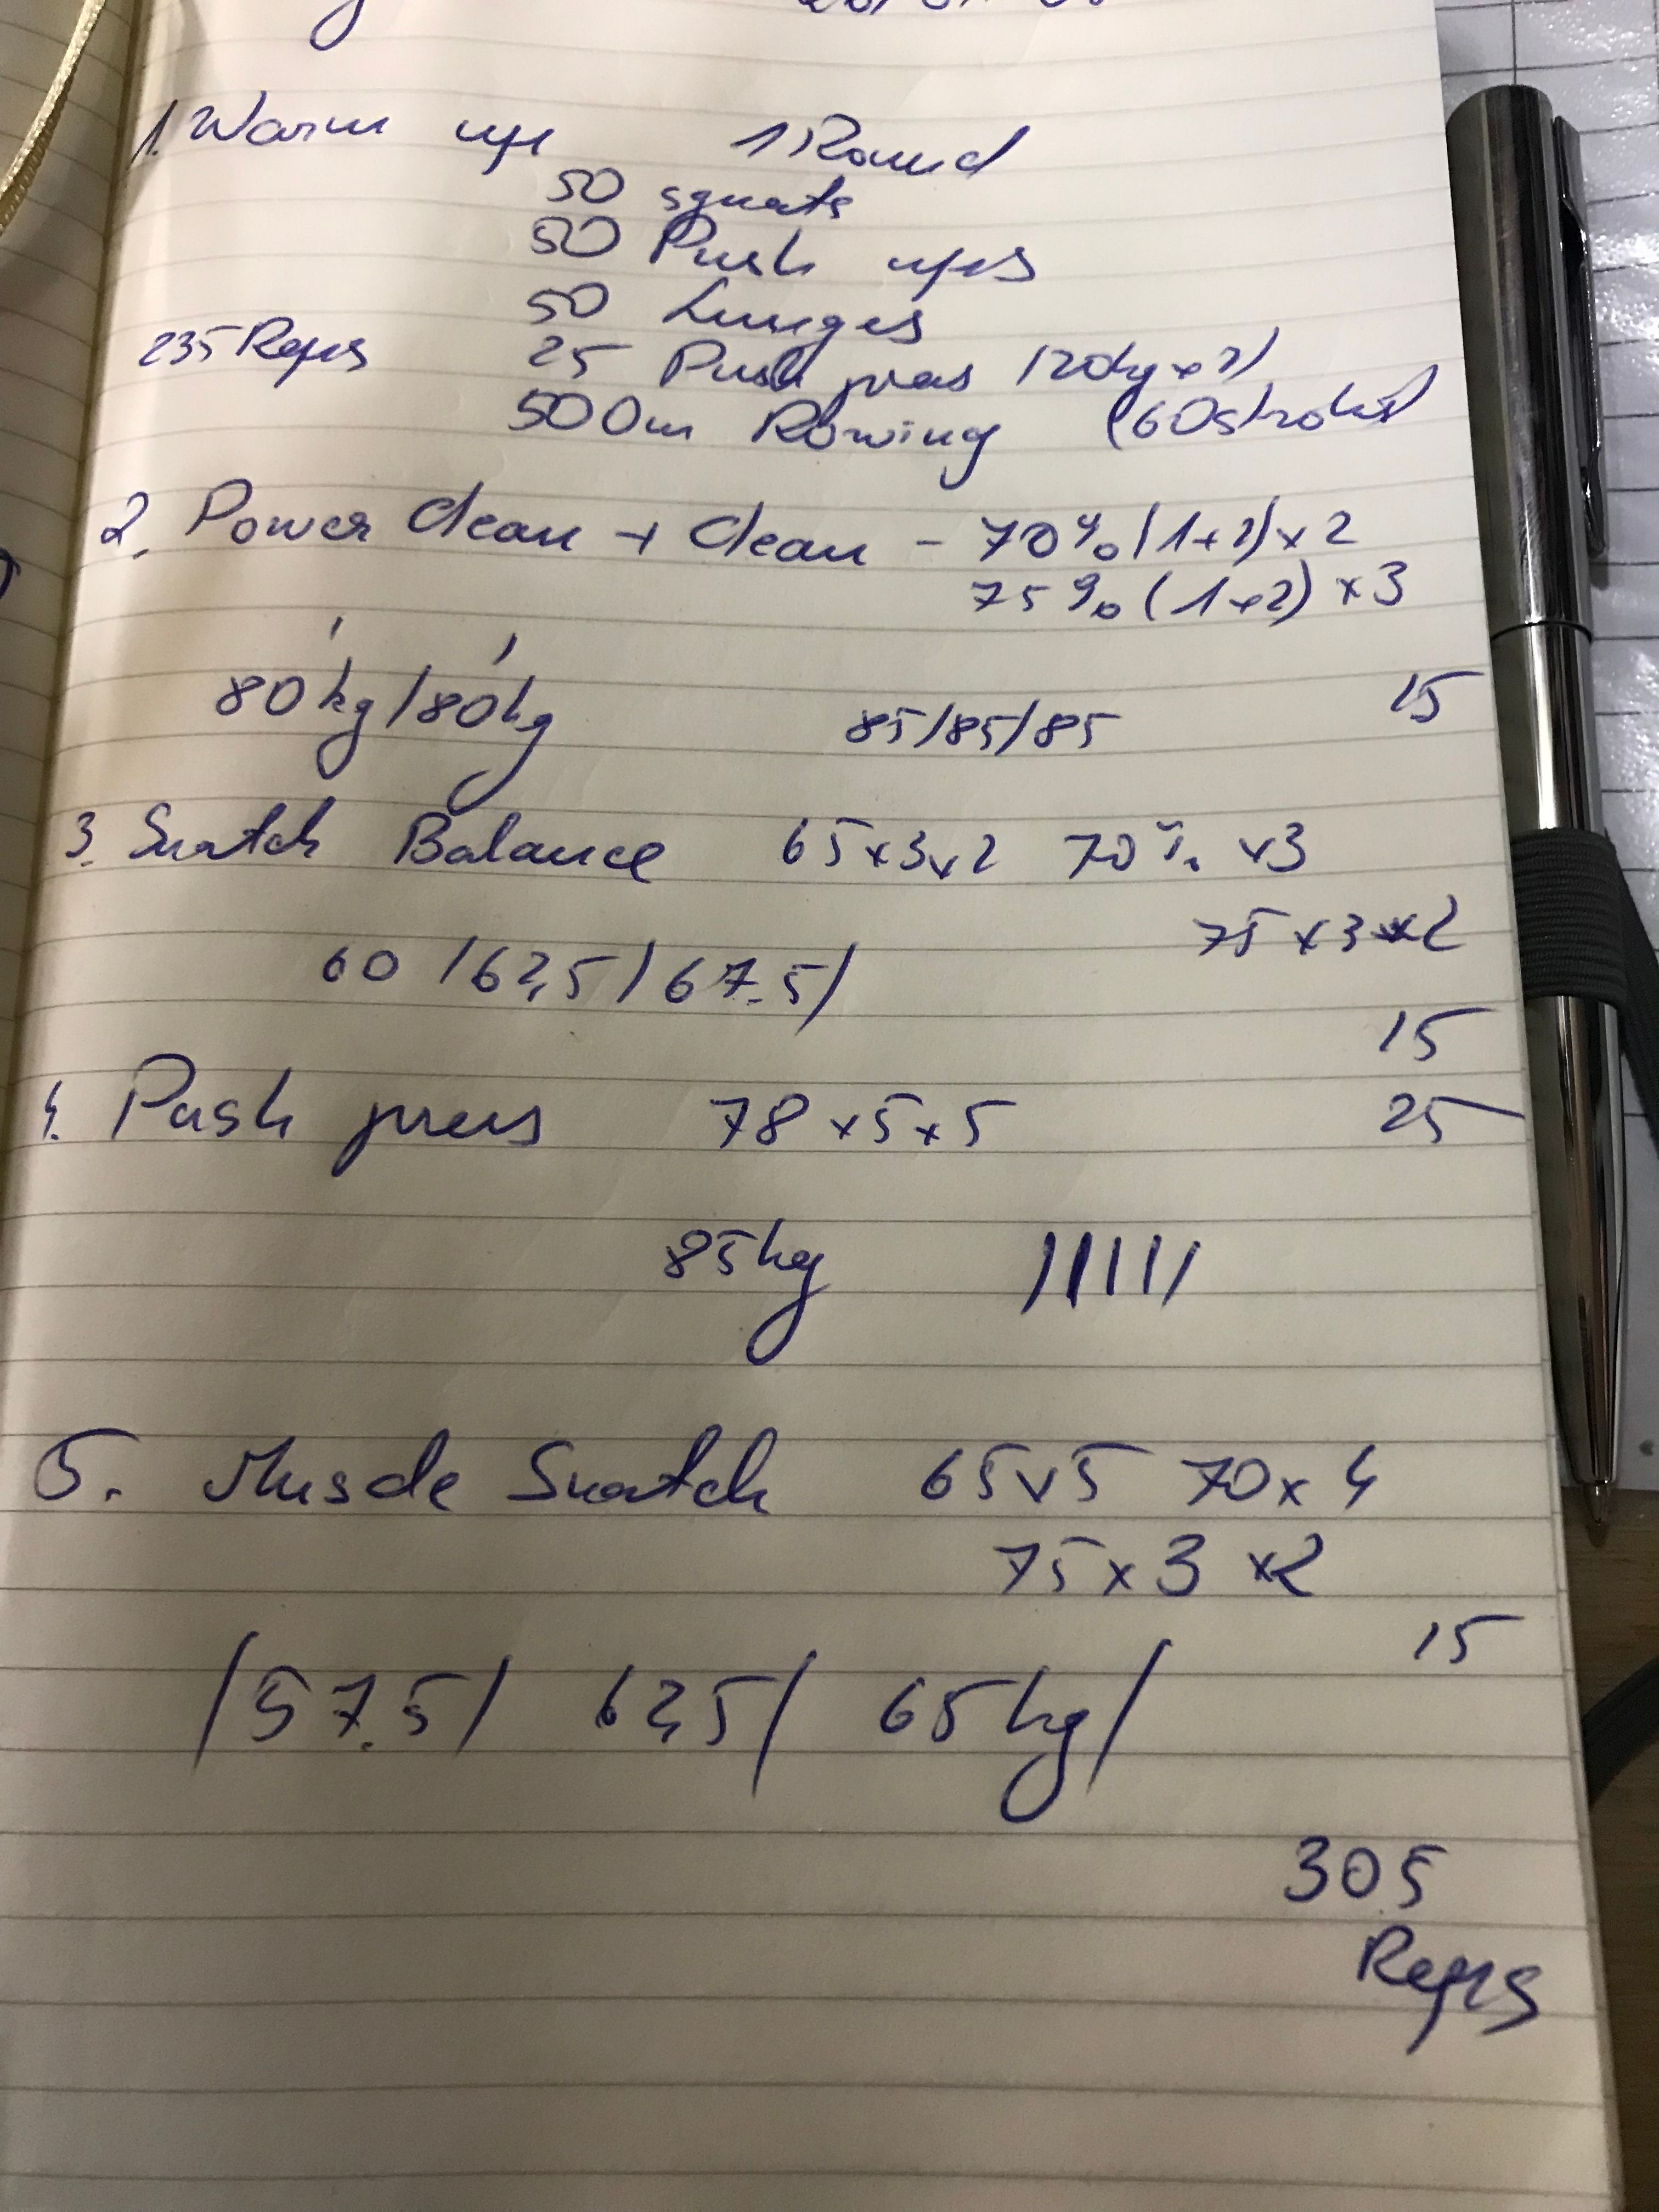 1. Warm up 1 Round
50 squats
50 Push ups
50 Lunges
235 Reps 25 Push press (20kg x 2)
500m Rowing (60 strokes)
2. Power Clean + Clean - 70% (1+2) x 2
75% (1+2) x 3
80kg/80kg 85/85/85 15
3. Snatch Balance 65x3x2 70% x3
75 x 3 x 2
60 / 62,5 / 67.5 /
15
4. Push press 78 x 5 x 5 25
85kg
5. Muscle Snatch 65x5 70x4
75 x 3 x2
15
/ 57.5 / 62,5 / 65kg /
305
Reps